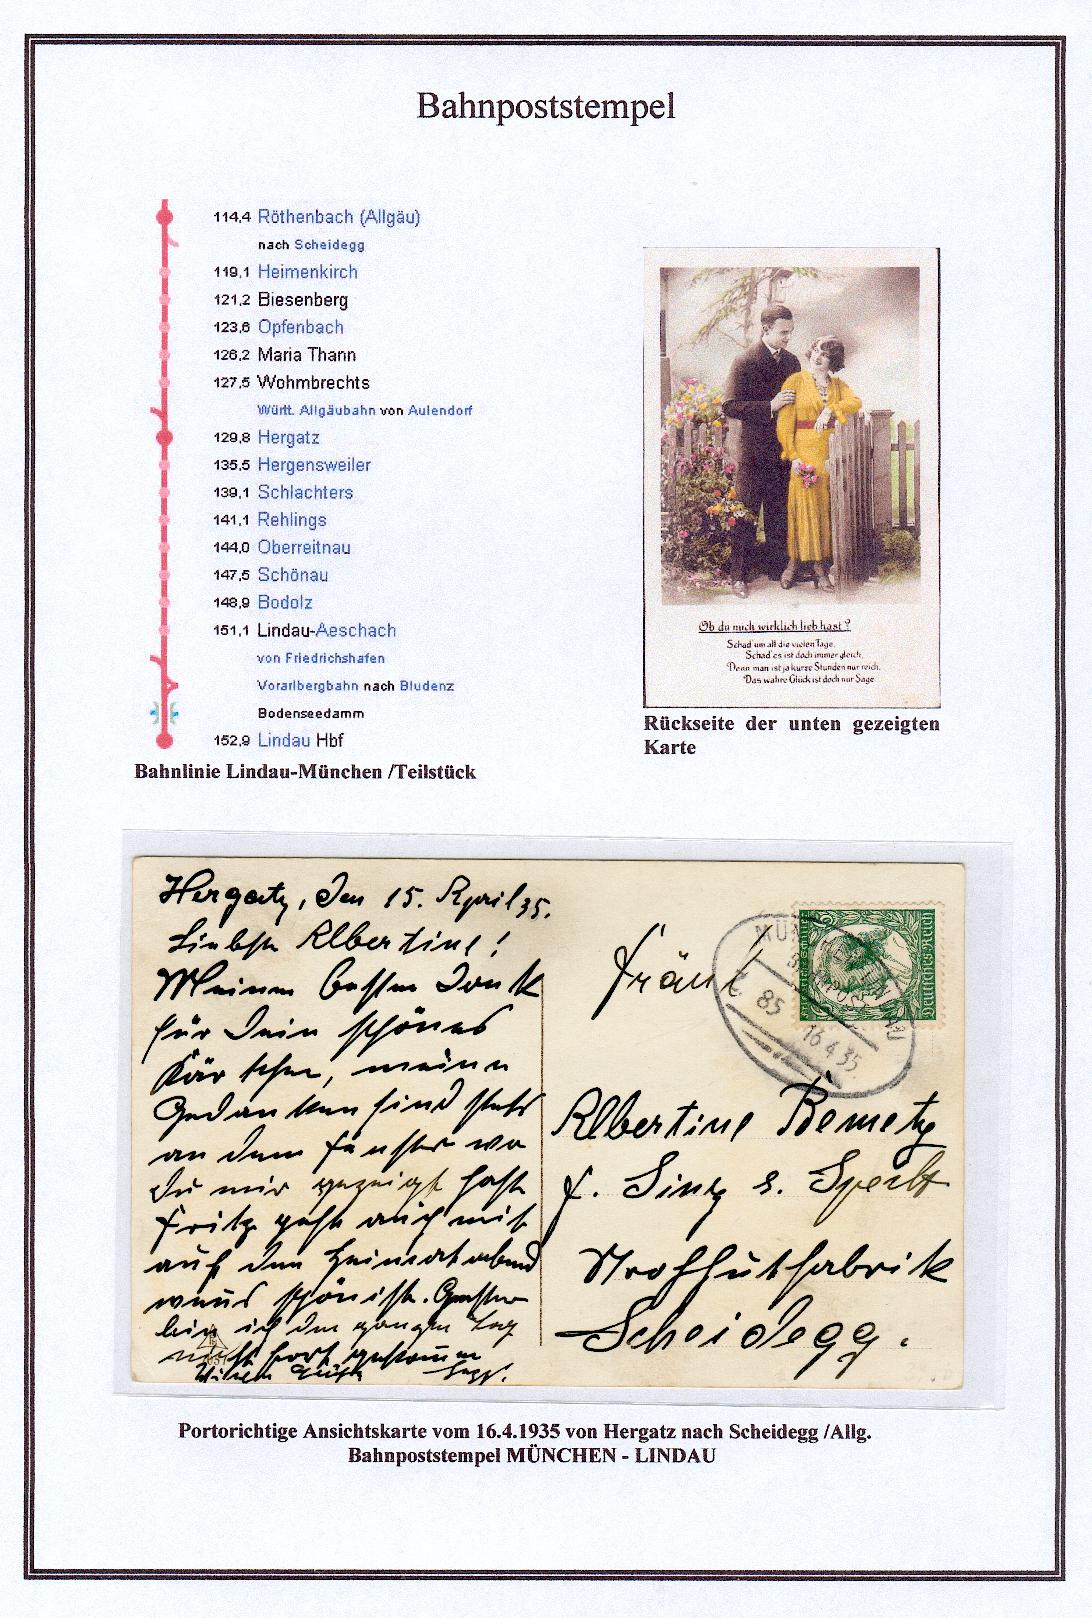 Bahnpoststempel
114,4 Röthenbach (Allgäu)
nach Scheidegg
119,1 Heimenkirch
121,2 Biesenberg
123,6 Opfenbach
126,2 Maria Thann
127,5 Wohmbrechts
Württ. Allgäubahn von Aulendorf
129,8 Hergatz
135,5 Hergensweiler
139,1 Schlachters
141,1 Rehlings
144,0 Oberreitnau
147,5 Schönau
148,9 Bodolz
151,1 Lindau-Aeschach
von Friedrichshafen
Vorarlbergbahn nach Bludenz
Bodenseedamm
152,9 Lindau Hbf
Bahnlinie Lindau-München /Teilstück
Ob du mich wirklich lieb hast?
Schad' um all die vielen Tage,
Schad' es ist doch immer gleich,
Denn man ist ja kurze Stunden nur reich,
Das wahre Glück ist doch nur Sage
Rückseite der unten gezeigten
Karte
Hergatz, den 15. April 35.
Liebste Albertine!
Meinen besten Dank
für Dein schönes
Kärtchen, meine
Gedanken sind stets
an dem Fenster wo
du mir gezeigt hast
Fritz geht auch mit
auf den Heimatabend
wenns schön ist. Gestern
bin ich den ganzen Tag
nicht fort gekommen
Fräul
Albertine
f. s. Specht
Strohhutfabrik
Scheidegg.
Deutsches Reich
BAHNPOST
Z 85
16 4 35
Portorichtige Ansichtskarte vom 16.4.1935 von Hergatz nach Scheidegg /Allg.
Bahnpoststempel MÜNCHEN - LINDAU